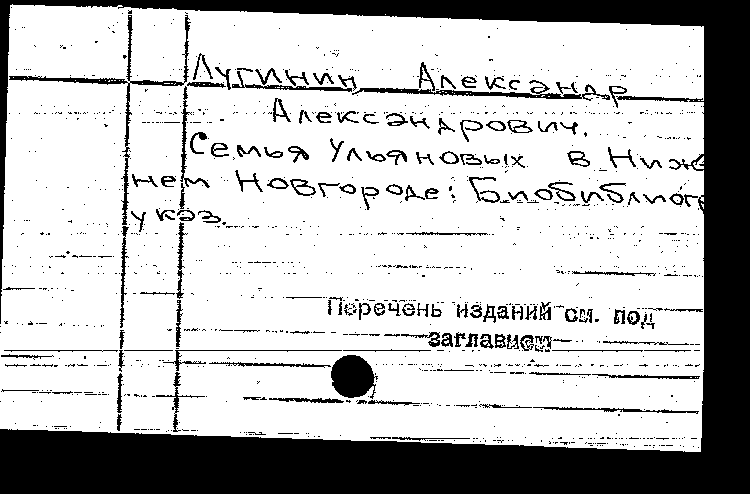 Лугинин Александр
Александрович.
Семья Ульяновых в Ниж
нем Новгороде: Биобиблиогр
указ.
Перечень изданий см. под
заглавием